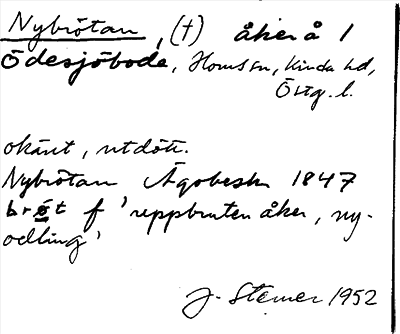 Nybrötan, (†) åker å 1
Ödesjöbode, Horns sn, Kinda hd,
Östg. l.
okänt, utdött.
Nybrötan Ägobeskr 1847
bröt f 'uppbruten åker, ny-
odling'
J. Sterner 1952